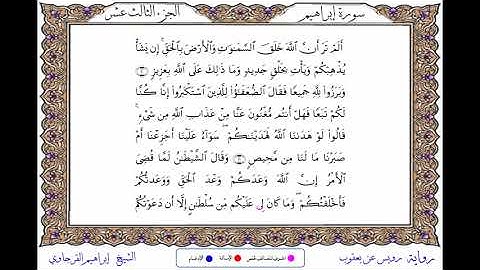 سورة إبراهيم
الجزء الثالث عشر
أَلَمْ تَرَ أَنَّ ٱللَّهَ خَلَقَ ٱلسَّمَٰوَٰتِ وَٱلْأَرْضَ بِٱلْحَقِّ ۚ إِن يَشَأْ
يُذْهِبْكُمْ وَيَأْتِ بِخَلْقٍ جَدِيدٍ وَمَا ذَٰلِكَ عَلَى ٱللَّهِ بِعَزِيزٍ
وَبَرَزُوا۟ لِلَّهِ جَمِيعًا فَقَالَ ٱلضُّعَفَٰٓؤُا۟ لِلَّذِينَ ٱسْتَكْبَرُوٓا۟ إِنَّا كُنَّا
لَكُمْ تَبَعًا فَهَلْ أَنتُم مُّغْنُونَ عَنَّا مِنْ عَذَابِ ٱللَّهِ مِن شَىْءٍ ۚ
قَالُوا۟ لَوْ هَدَىٰنَا ٱللَّهُ لَهَدَيْنَٰكُمْ ۖ سَوَآءٌ عَلَيْنَآ أَجَزِعْنَآ أَمْ
صَبَرْنَا مَا لَنَا مِن مَّحِيصٍ وَقَالَ ٱلشَّيْطَٰنُ لَمَّا قُضِىَ
ٱلْأَمْرُ إِنَّ ٱللَّهَ وَعَدَكُمْ وَعْدَ ٱلْحَقِّ وَوَعَدتُّكُمْ
فَأَخْلَفْتُكُمْ ۖ وَمَا كَانَ لِى عَلَيْكُم مِّن سُلْطَٰنٍ إِلَّآ أَن دَعَوْتُكُمْ
رواية رويس عن يعقوب
الشيخ إبراهيم القرجاوي